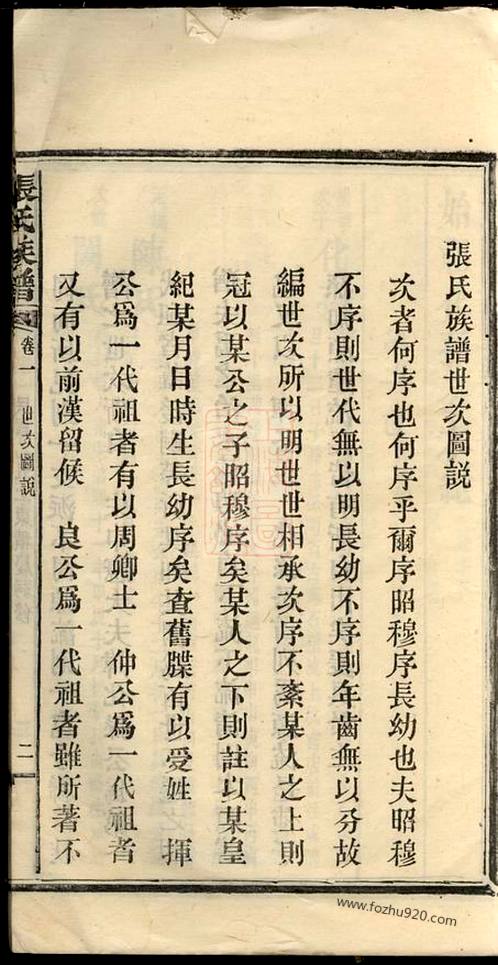 張氏族譜世次圖説
次者何序也何序乎爾序昭穆序長幼也夫昭穆
不序則世代無以明長幼不序則年齒無以分故
編世次所以明世世相承次序不紊某人之上則
冠以某公之子昭穆序矣某人之下則註以某皇
紀某月日時生長幼序矣查舊牒有以受姓　揮
公爲一代祖者有以周卿士　仲公爲一代祖者
又有以前漢留候　良公爲一代祖者雖所著不
張氏族譜　卷一　世次圖説　二
www.fozhu920.com